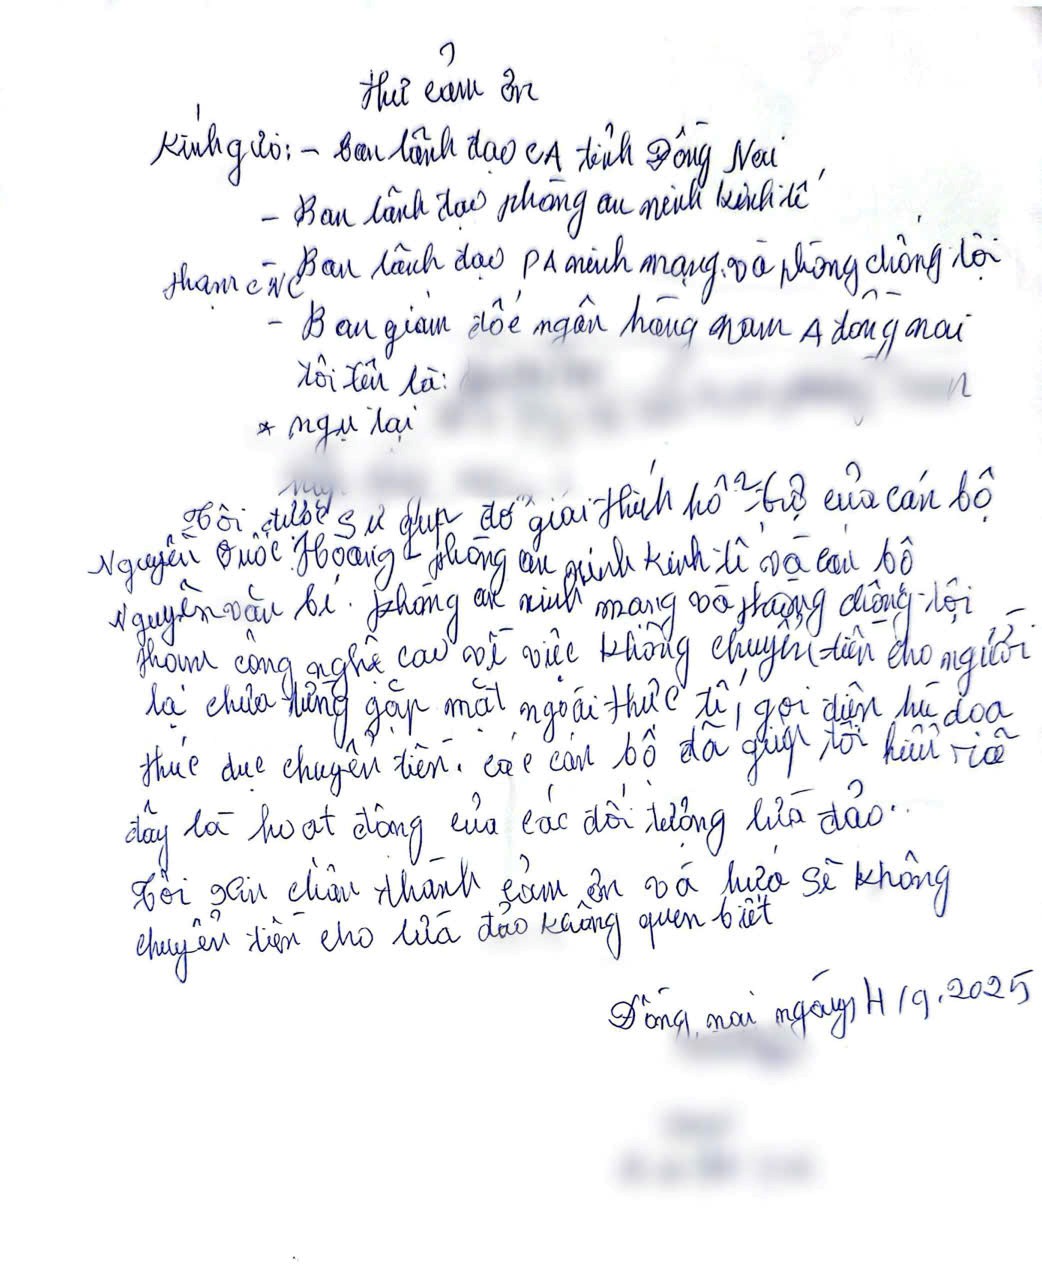 Thư cảm ơn
Kính gửi: - Ban lãnh đạo CA tỉnh Đồng Nai
- Ban lãnh đạo phòng an ninh kinh tế
Ban lãnh đạo PA ninh mạng và phòng chống tội
phạm CNC
- Ban giám đốc ngân hàng nam A đồng nai
tôi tên là:
* ngụ tại
Tôi được sự giúp đỡ giải thích hỗ trợ của cán bộ
Nguyễn Quốc Hoàng - phòng an ninh kinh tế và cán bộ
Nguyễn văn bé. phòng an ninh mạng và phòng chống tội
phạm công nghệ cao về việc không chuyển tiền cho người
lạ chưa từng gặp mặt ngoài thực tế, gọi điện hù dọa
thúc dục chuyển tiền. các cán bộ đã giúp tôi hiểu rõ
đây là hoạt động của các đối tượng lừa đảo..
Tôi xin chân thành cảm ơn và hứa sẽ không
chuyển tiền cho lừa đảo không quen biết
Đồng nai ngày 4/9.2025